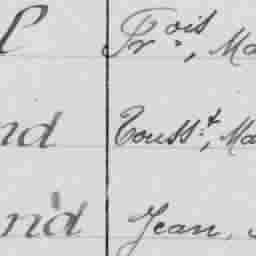 l Frois, Ma
nd Touss.t, Ma
nd Jean,